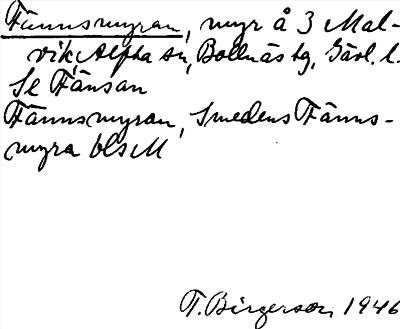 Fännsmyran, myr å 3 Mal-
vik, Alfta sn, Bollnäs tg, Gävl. l.
Se Fänsan
Fännsmyran, Smedens Fänns-
myra bls M
T. Birgerson 1946